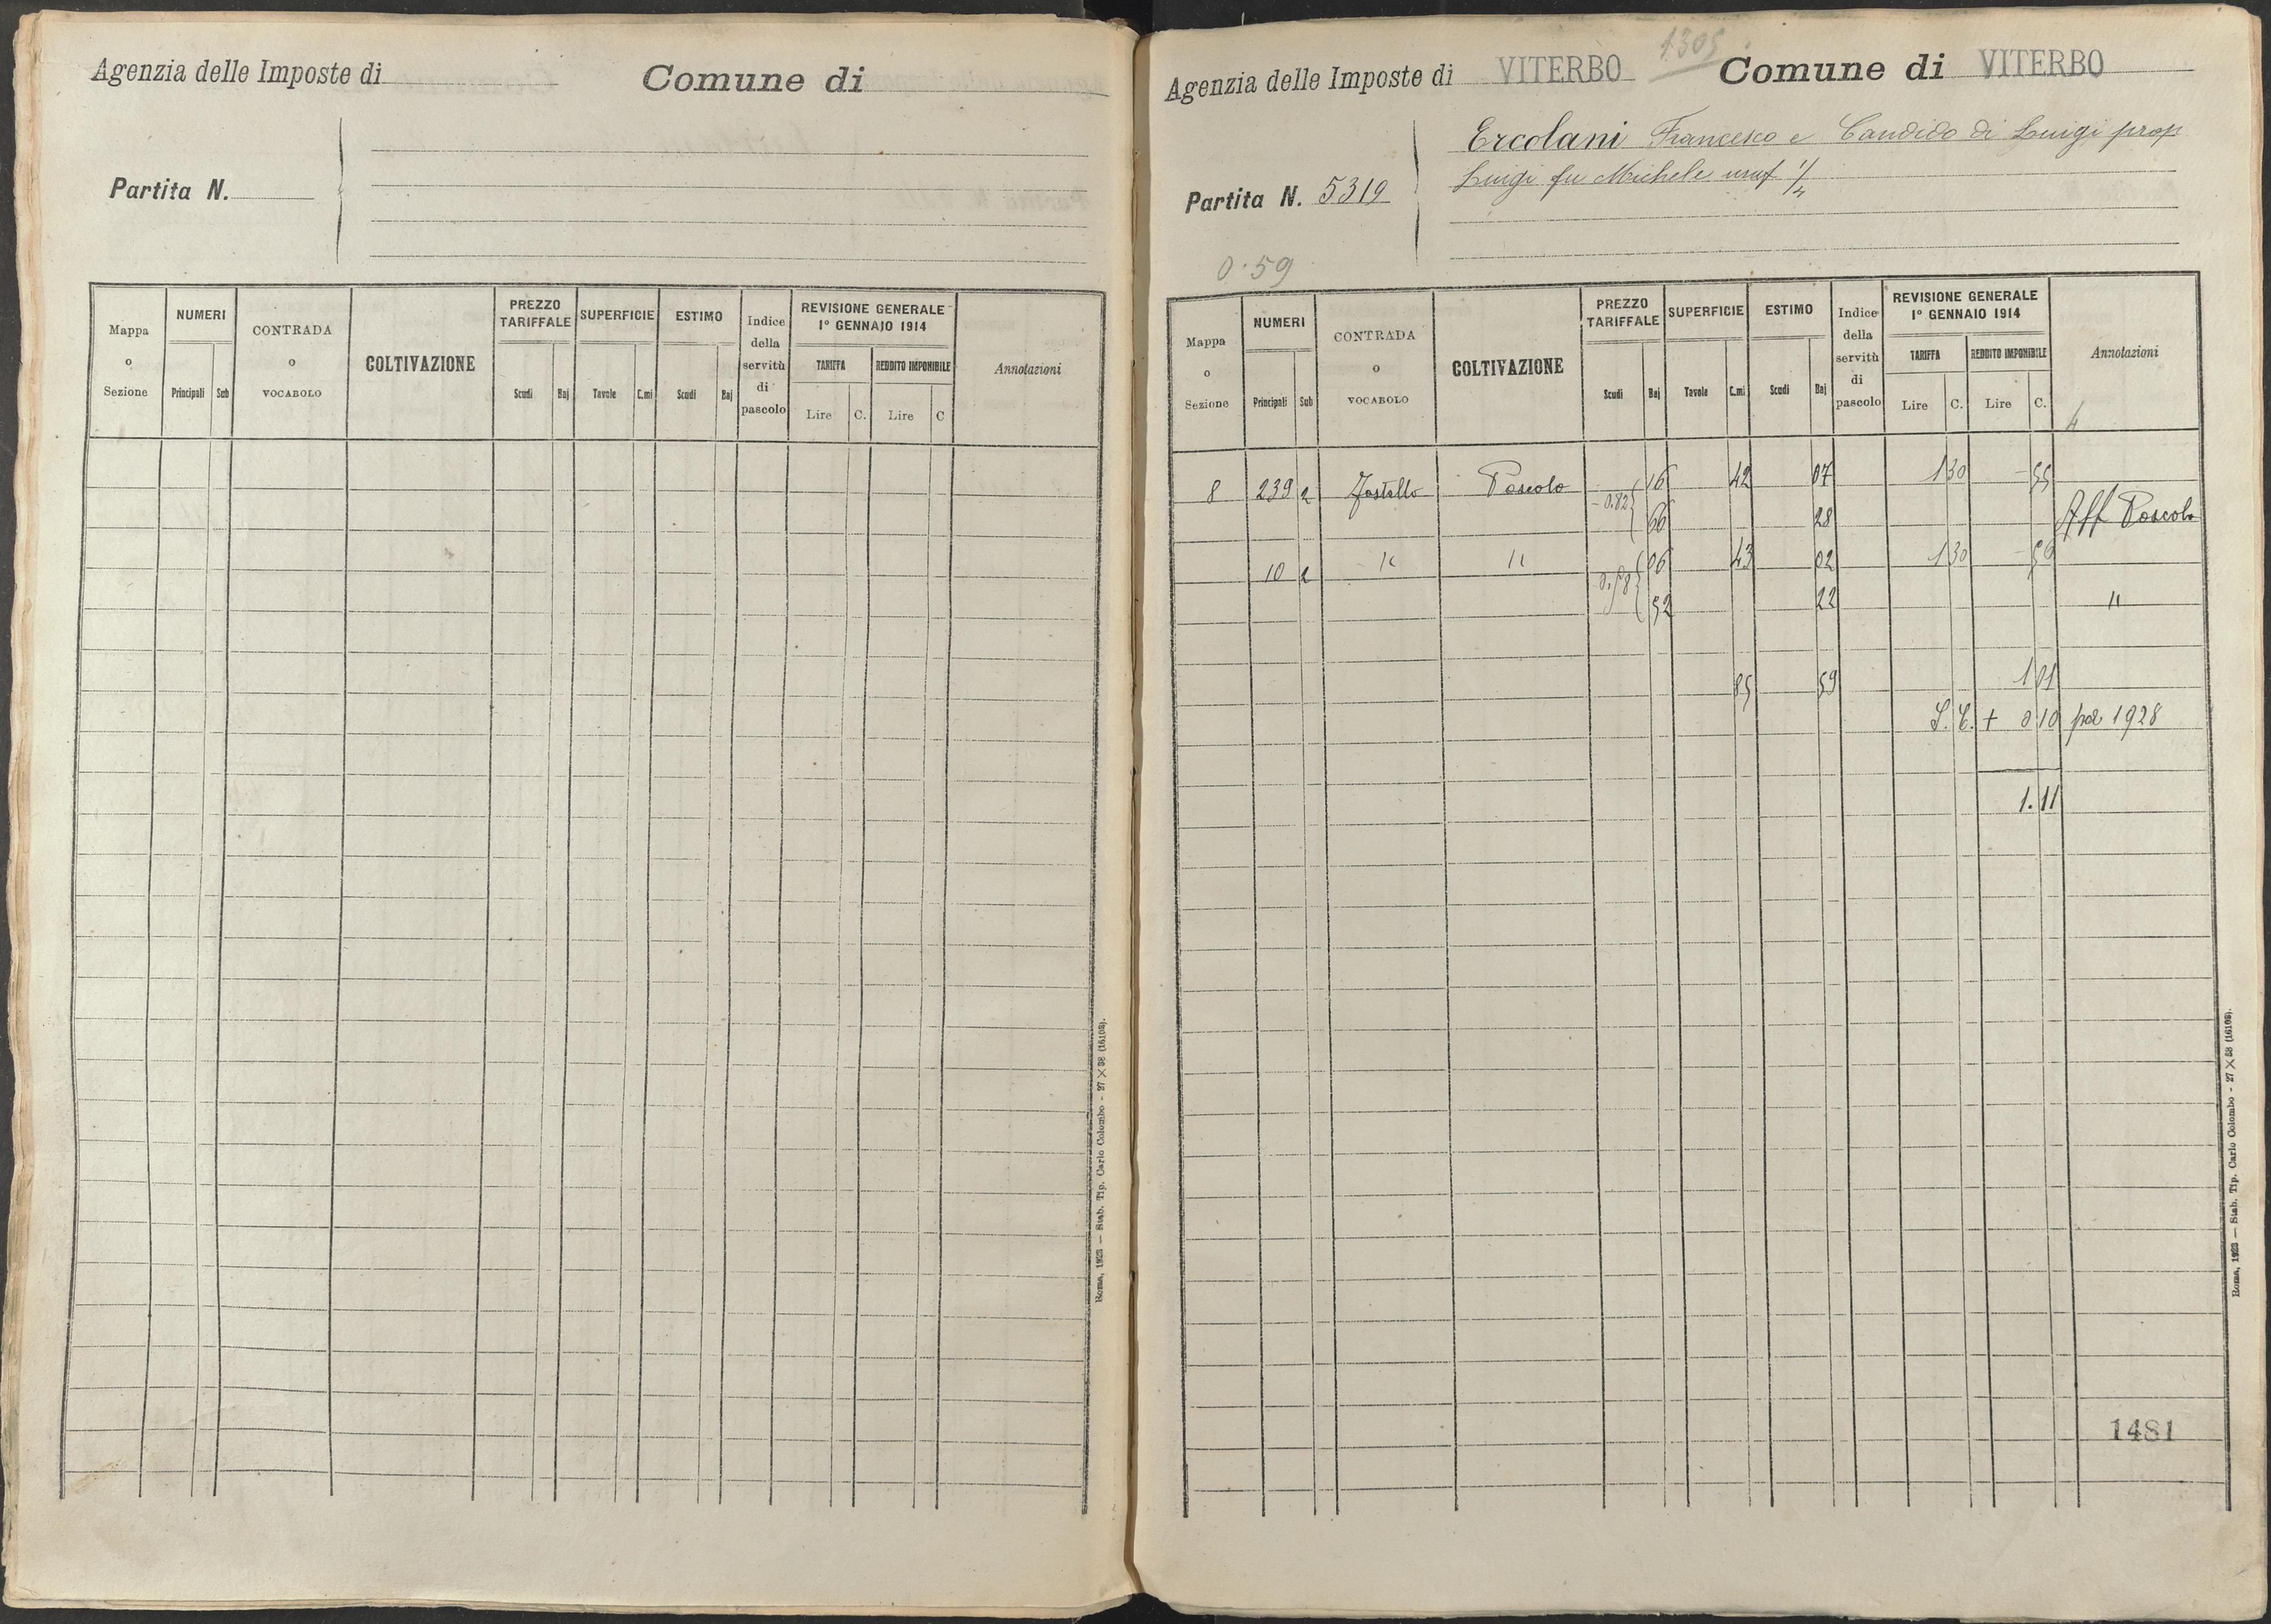 Agenzia delle Imposte di
Comune di
Partita N.
Mappa o Sezione
NUMERI
Principali Sub
CONTRADA o VOCABOLO
COLTIVAZIONE
PREZZO TARIFFALE
Scudi Baj
SUPERFICIE
Tavole C.mi
ESTIMO
Scudi Baj
Indice della servitù di pascolo
REVISIONE GENERALE
1° GENNAIO 1914
TARIFFA REDDITO IMPONIBILE
Lire C. Lire C
Annotazioni
Roma, 1923 — Stab. Tip. Carlo Colombo - 27 X 38 (16103).
1305
Agenzia delle Imposte di VITERBO Comune di VITERBO
Ercolani Francesco e Candido di Luigi prop
Luigi fu Michele usuf 1/4
Partita N. 5319
0.59
Mappa o Sezione
NUMERI
Principali Sub
CONTRADA o VOCABOLO
COLTIVAZIONE
PREZZO TARIFFALE
Scudi Baj
SUPERFICIE
Tavole C.mi
ESTIMO
Scudi Baj
Indice della servitù di pascolo
REVISIONE GENERALE
1° GENNAIO 1914
TARIFFA REDDITO IMPONIBILE
Lire C. Lire C.
Annotazioni
4
8 239 2 Pascolo 0.82 16 42 07 1 30 - 55
66 28 Aff Pascolo
10 2 " " 06 43 02 1 30 - 56
52 22 "
85 59 1 01
S.C. + 0 10 per 1928
1.11
1481
Roma, 1923 — Stab. Tip. Carlo Colombo - 27 X 38 (16103).